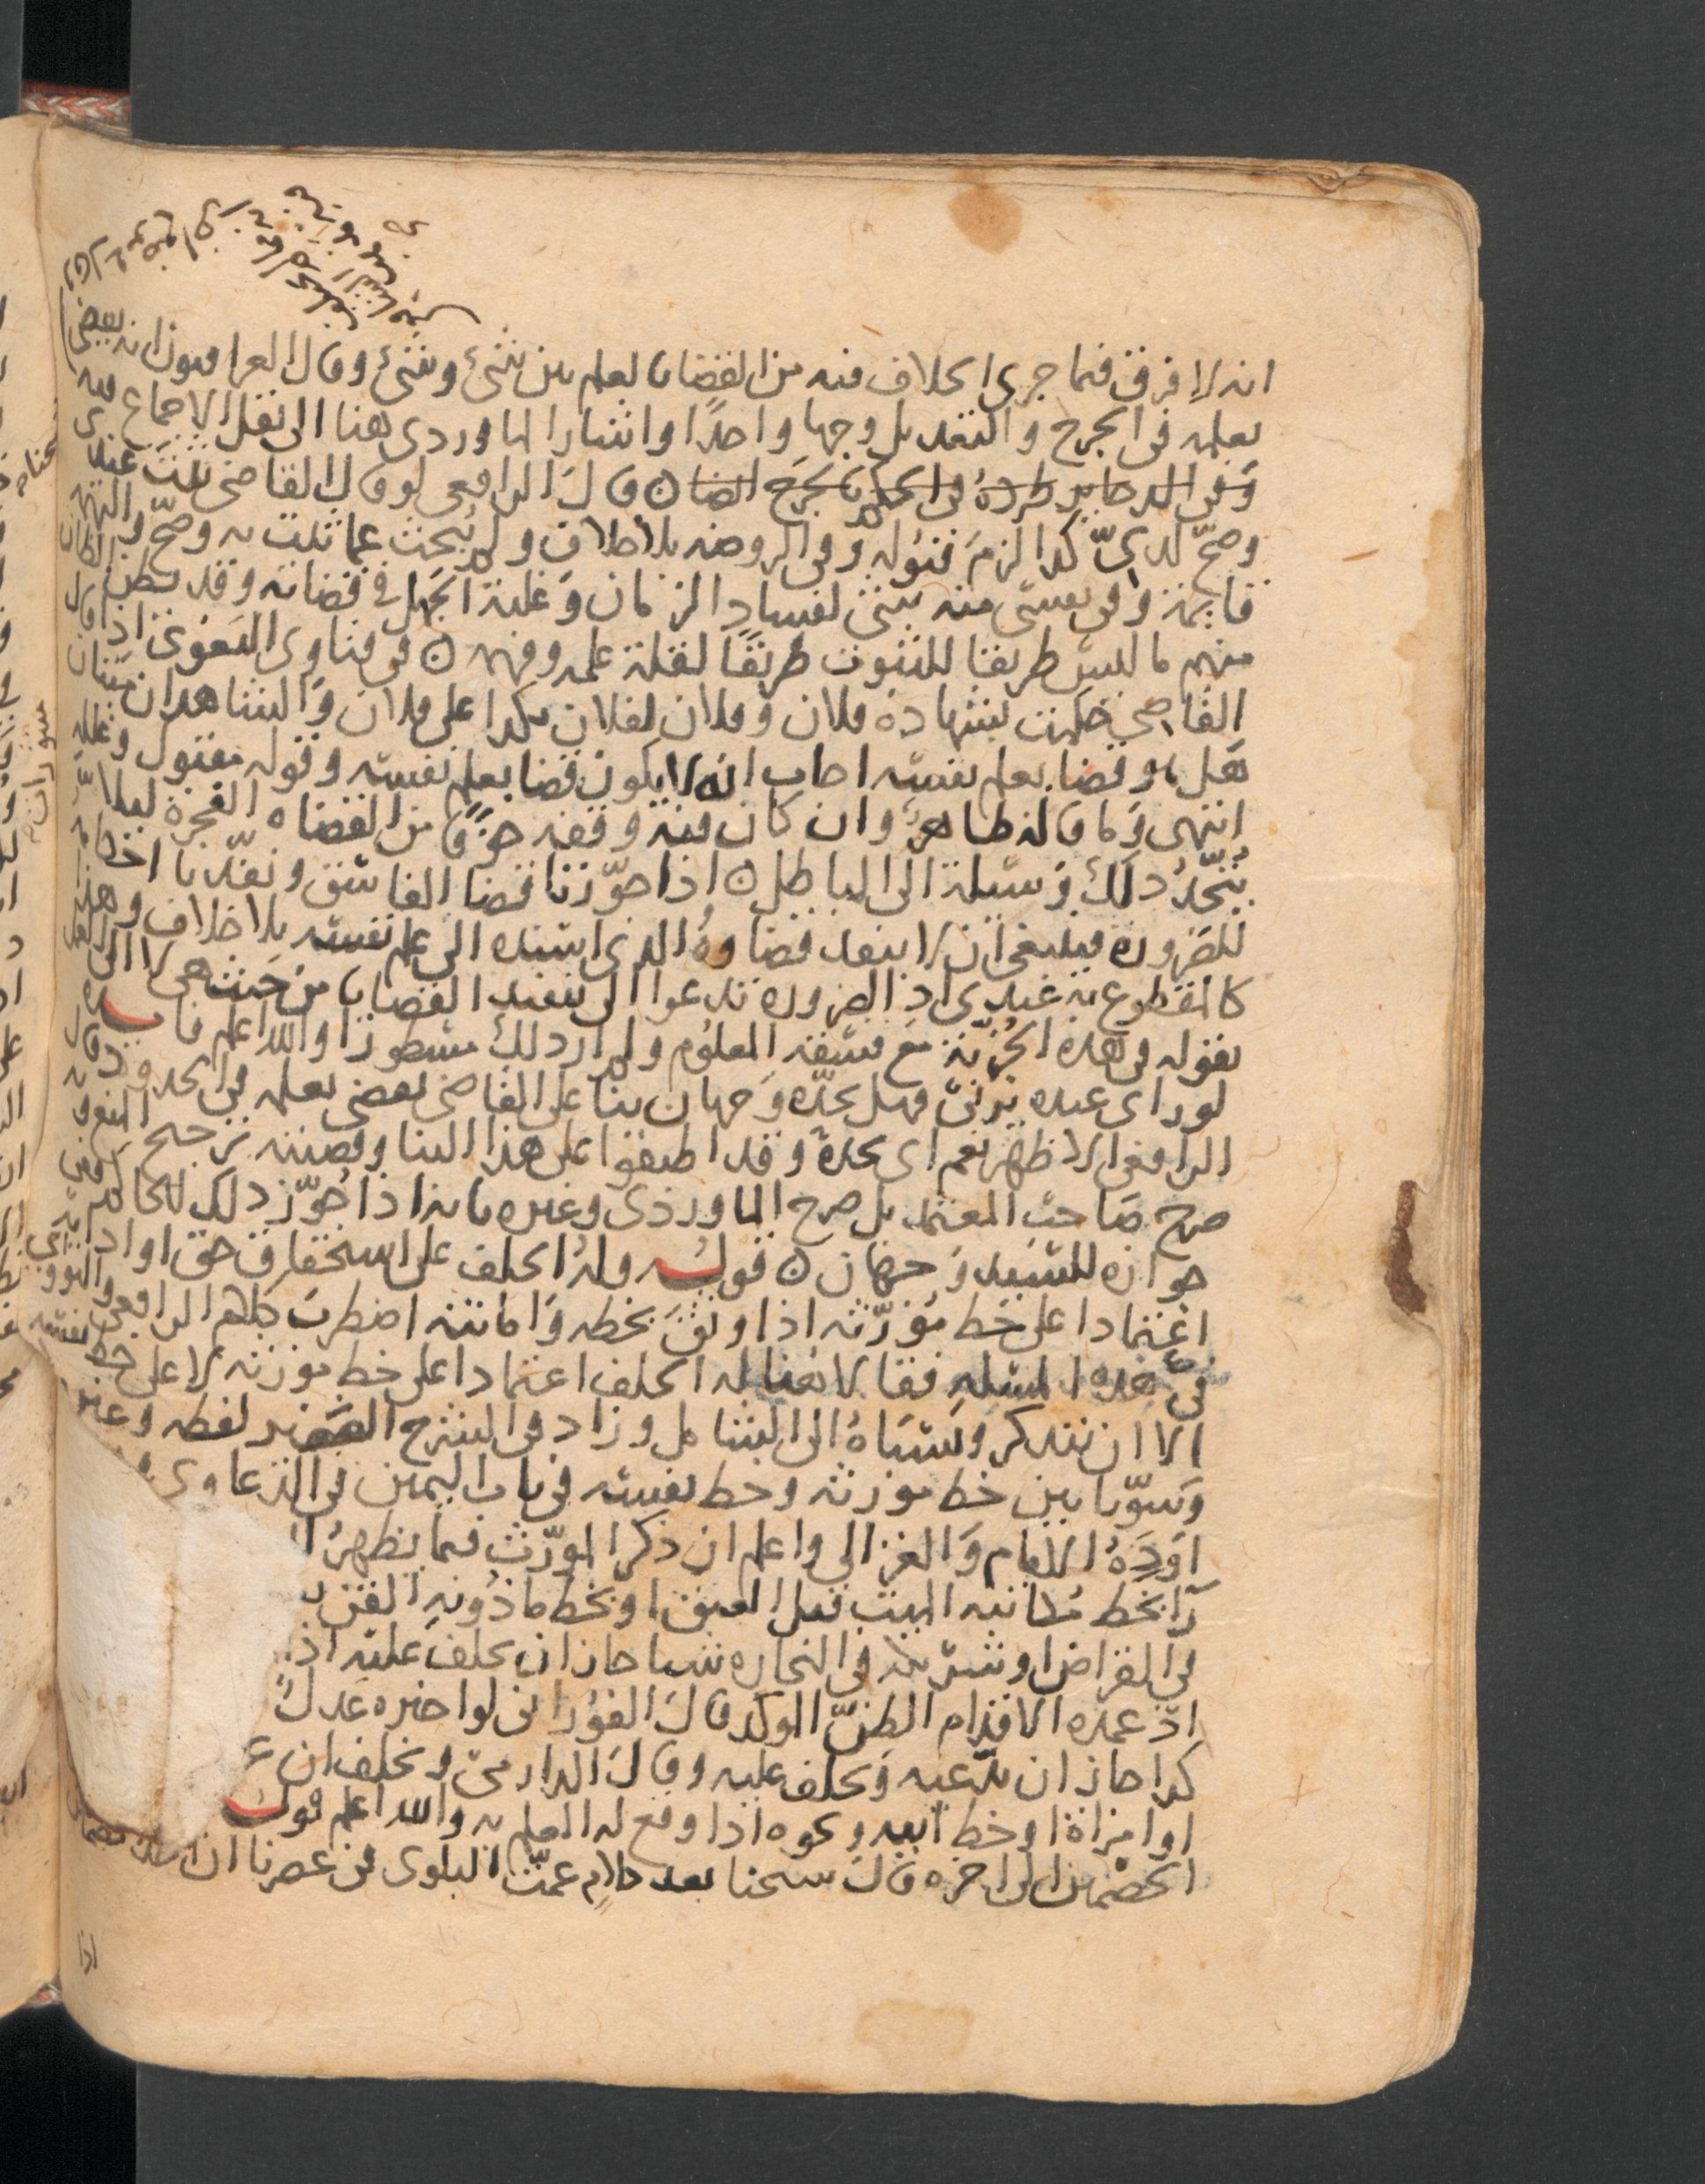 انه لا فرق فيما جرى الخلاف فيه من القضا بالعلم بين شئ وشئ وقال العراقيون انه يقضي
بعلمه في الجرح والتعديل وجها واحدًا واشار الماوردي هنا الى نقل الاجماع فيه
وفي طرده في بالجرح ايضا ن قال الرافعي لو قال القاضي ثبت عندي
وصحّ لديّ كذا لزم قبوله وفي الروضه بلا خلاف ولم يُبحث عما ثبت به وصحّ والتهمة
قايمة وفي نفسي منه شئ لفساد الزمان وغلبة الجهل في قضاته وقد يظن الظان
منهم ما ليس طريقا للثبوت طريقًا لقلة علمه وفهمه ن في فتاوى البغوي اذا قال
القاضي حكمت بشهادة فلان وفلان لفلان بكذا على فلان والشاهدان ميتان
هل هو قضا بعلم نفسه اجاب انه لا يكون قضا بعلم نفسه وقوله مقبول وعلله
انتهى وما قاله ظاهر وان كان فيه وقفه خوفًا من القضاه الفجرة ليلا
يُتّخذ ذلك وسيلة الى الباطل ن اذا جوّزنا قضا الفاسق ونفّذنا احكامه
للضرورة فينبغي ان لا ينفد قضاوهُ الذي اسنده الى علم نفسه بلا خلاف وهذا
كالمقطوع به عندي اذ الضرورة تدعوا الى تنفيذ القضايا من حيث هي لا الى العمل
بقوله في هذه الجُزئية مع فسقه المعلوم ولم ار ذلك مسطورًا والله اعلم فايـده
لو راى عبده يزنيّ فهل يحدّه وجهان بنا على القاضي يقضي بعلمه في الحد قال
الرافعي الاظهر نعم اي يحدهُ وقد اطبقوا على هذا البنا وقضيته ترجيح المنع وبه
صرح صاحب المعتمد بل صرح الماوردي وغيره بانه اذا جُوّز ذلك للحاكم ففي
جوازه للسيد وجهان ن قولـه وله الحلف على استحقاق حق او ادايه
اعتمادا على خط مُورّثه اذا وثق بخطه وامانته اضطرب كلام الرافعي والنووي
في هذه المسله فقالا هنا له الحلف اعتمادا على خط مورثه لا على خط نفسه
الا ان يتذكر ونسباهُ الى الشامل وزاد في الشرح الصغير لفظه
وسوّيا بين خط مورثه وخط نفسه في باب اليمين في الدعاوى
اوردهُ الامام والغزالي واعلم ان ذكر المورّث فيما يظهرُ
رَاَ بخط مُكاتبه الميت قبل العتق او بخط ماذونِه القن
في القراض او شريكه في التجاره شيا جاز ان يحلف عليه اذ
اذ عمدة الاقدام الظنّ الموكد قال الفُوراني لو اخبره عدلٌ
كذا جاز ان يدّعيه ويحلف عليه وقال الدارميّ ويحلف ان
او امراة او خط ابيه ونحوه اذا وقع له العلم به والله اعلم قولـه
الخصمان الى اخره قال شيخنا بعد كلام عمّت البلوى في عصرنا ان
اذا